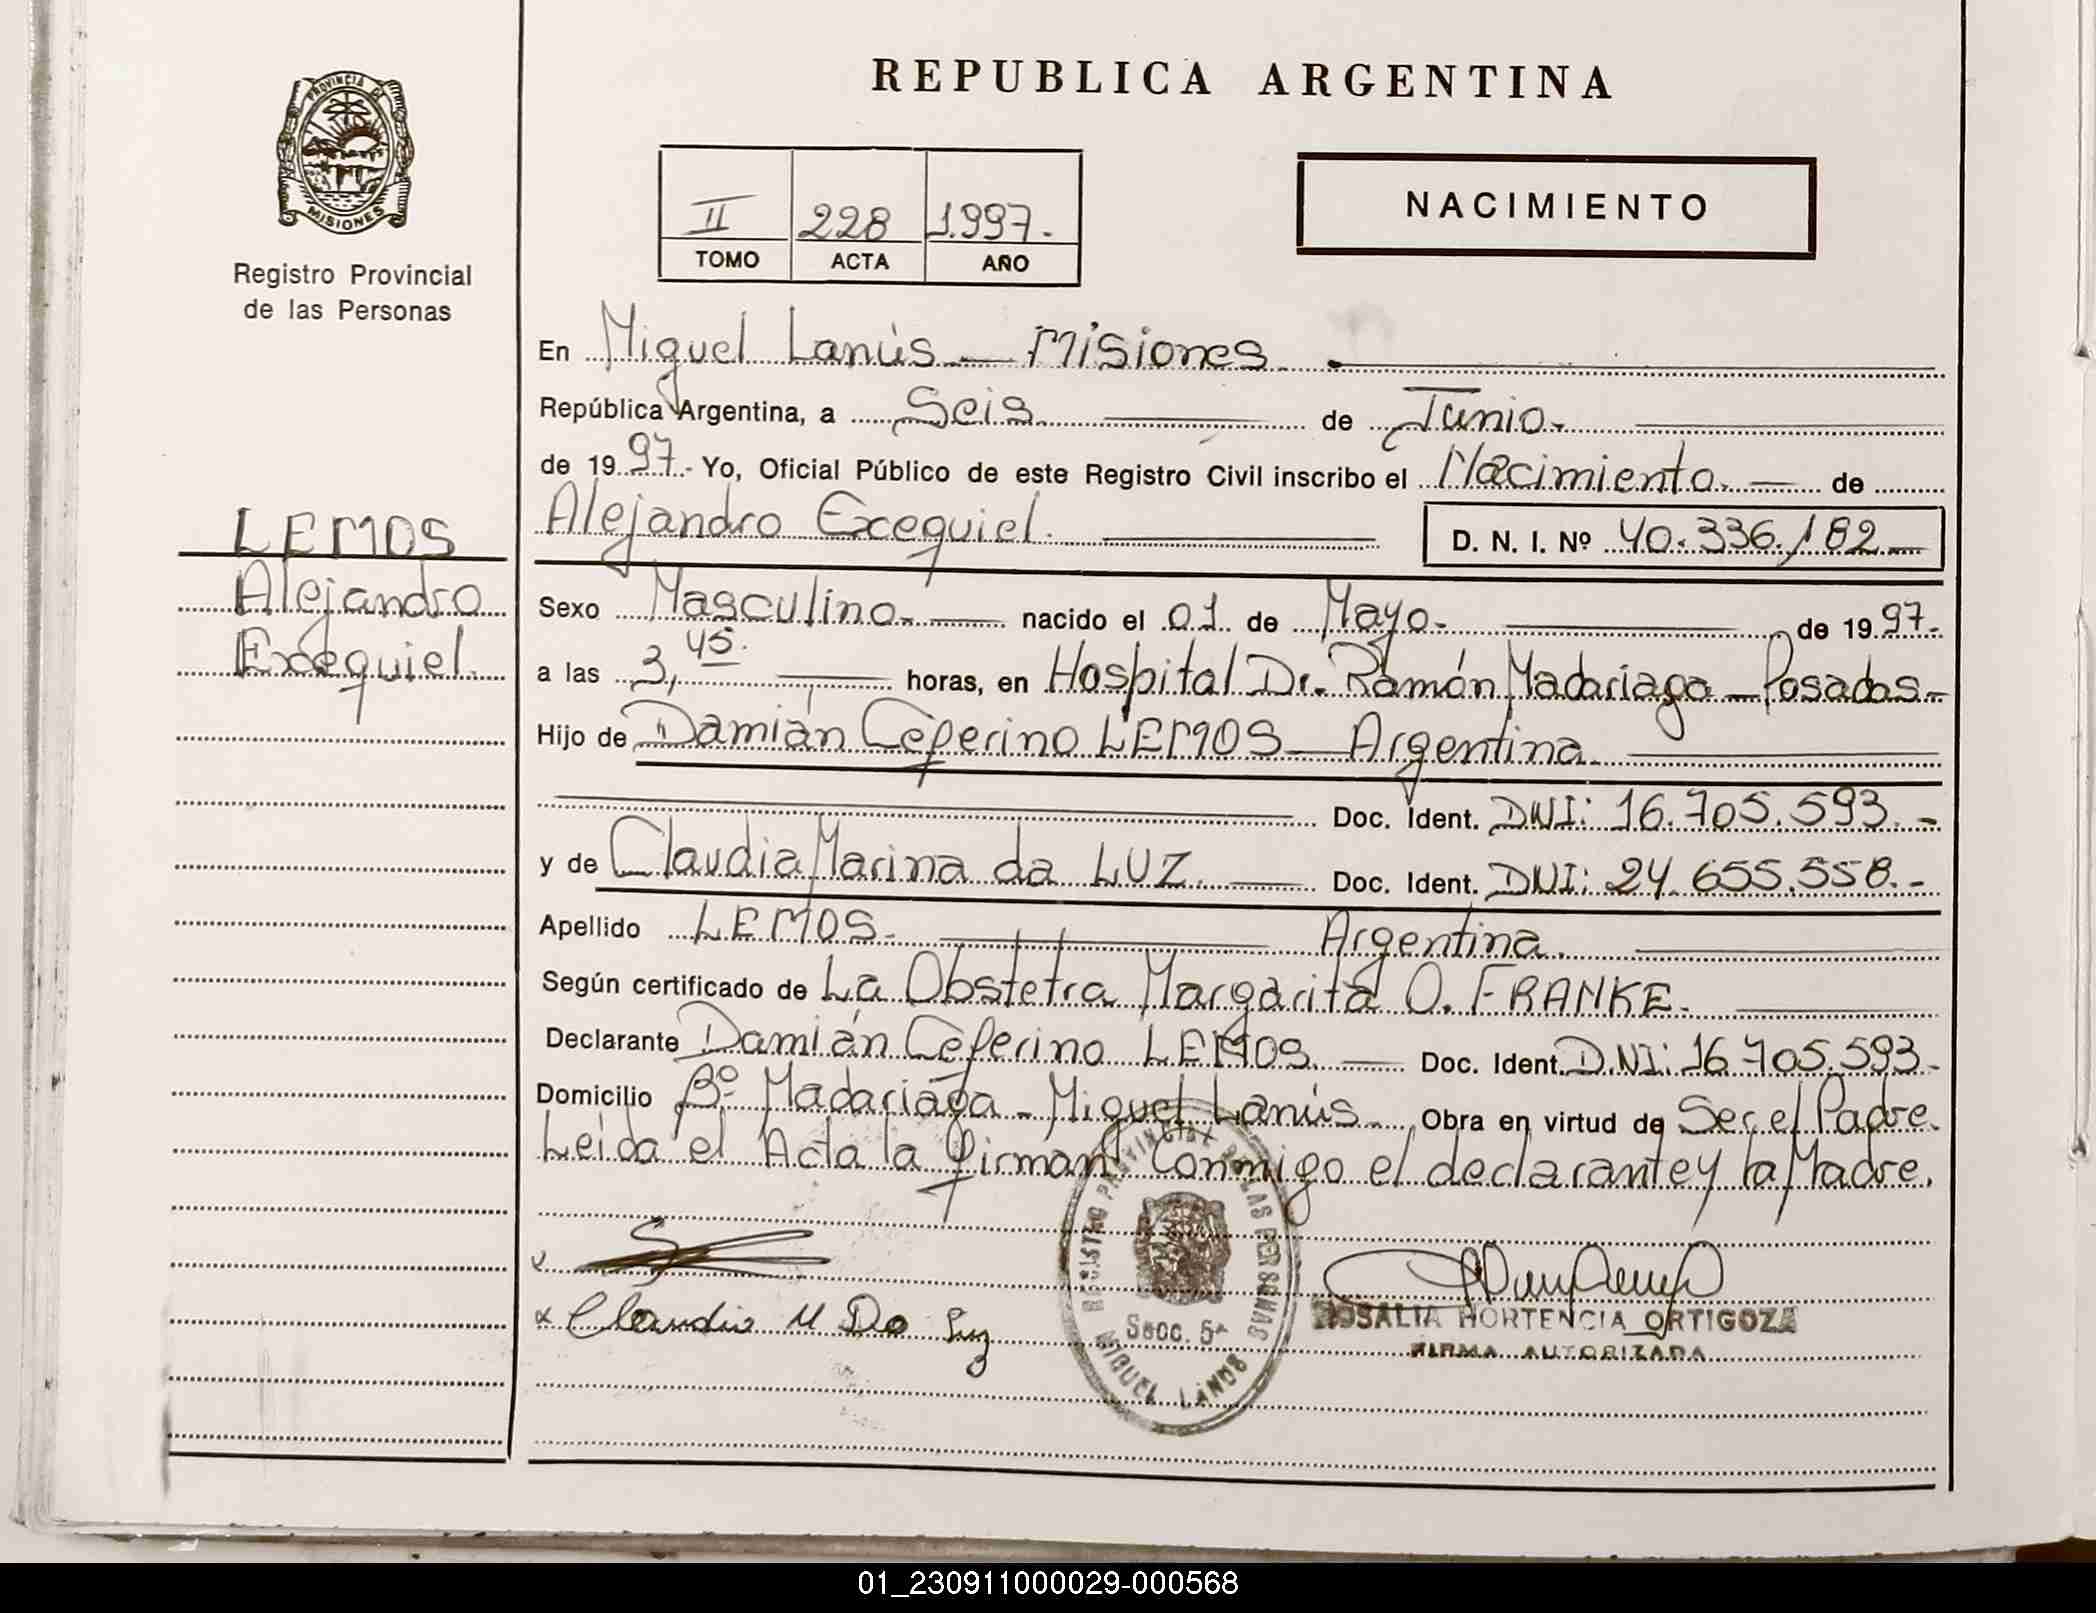 REPUBLICA ARGENTINA
PROVINCIA DE
MISIONES
Registro Provincial
de las Personas
II 228 1.997.-
TOMO ACTA AÑO
NACIMIENTO
LEMOS
Alejandro
Exequiel.
En Miguel Lanús - Misiones.
República Argentina, a Seis de Junio.
de 1997.- Yo, Oficial Público de este Registro Civil inscribo el Nacimiento. de
Alejandro Exequiel. D. N. I. Nº 40.336.182
Sexo Masculino. nacido el 01 de Mayo. de 1997.
a las 3,45. horas, en Hospital Dr. Ramón Madariaga - Posadas -
Hijo de Damián Ceferino LEMOS - Argentina.
Doc. Ident. DNI: 16.705.593.-
y de Claudia Marina da LUZ. Doc. Ident. DNI: 24.655.558.-
Apellido LEMOS. Argentina.
Según certificado de La Obstetra Margarita O. FRANKE.
Declarante Damián Ceferino LEMOS. Doc. Ident. D.NI: 16.705.593-
Domicilio Bº Madariaga - Miguel Lanús. Obra en virtud de Ser el Padre.
Leida el Acta la firman conmigo el declarante y la Madre.
Claudia M Da Luz
REGISTRO PROVINCIAL DE LAS PERSONAS
Secc. 5ª
MIGUEL LANUS
ROSALIA HORTENCIA ORTIGOZA
FIRMA AUTORIZADA
01_230911000029-000568